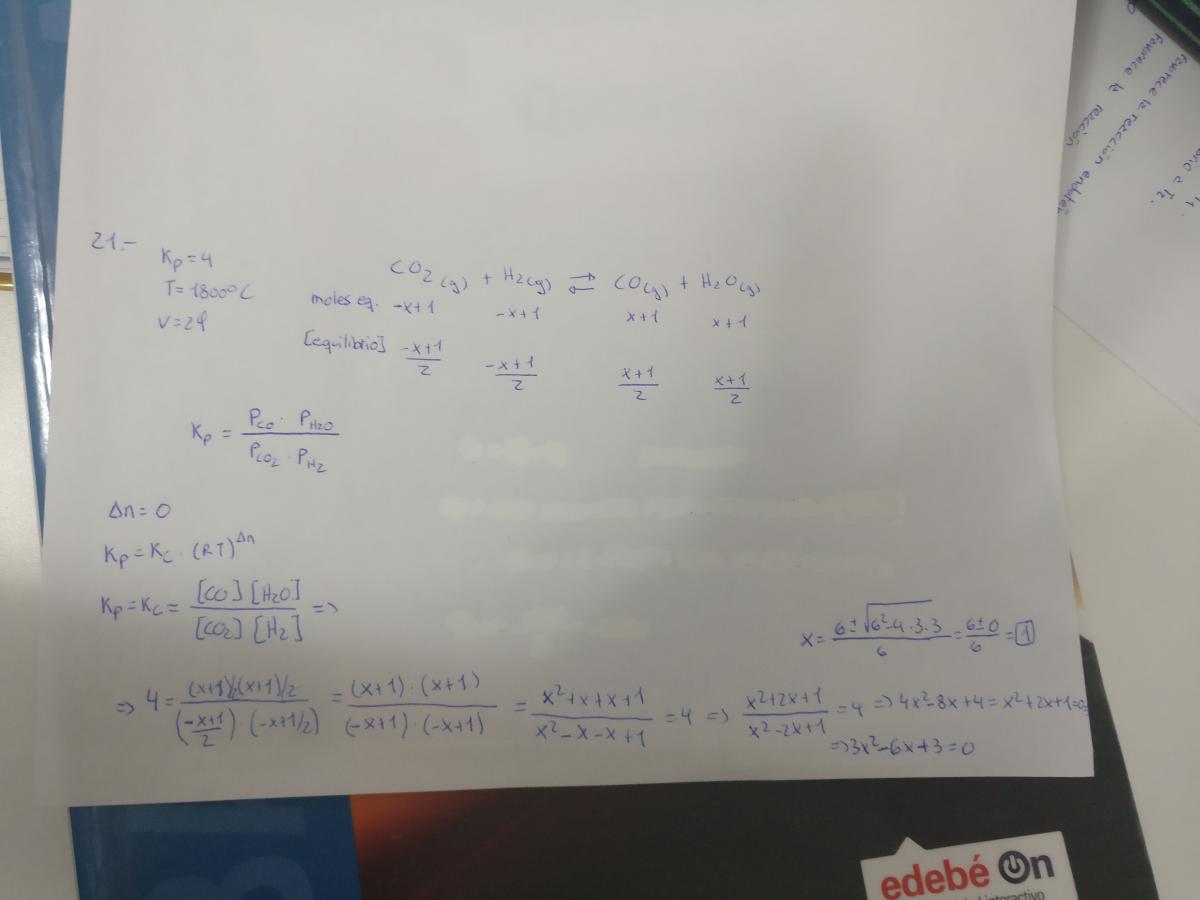 21.-
Kp = 4
T = 1800ºC
V = 2l
CO2 (g) + H2 (g) ⇌ CO (g) + H2O (g)
moles eq. -x+1 -x+1 x+1 x+1
[equilibrio] -x+1/2 -x+1/2 x+1/2 x+1/2
Kp = PCO · PH2O / PCO2 · PH2
Δn = 0
Kp = Kc · (RT)^Δn
Kp = Kc = [CO] [H2O] / [CO2] [H2] =>
x = 6 ± √6²-4·3·3 / 6 = 6±0 / 6 = 1
=> 4 = (x+1)/2 (x+1)/2 / (-x+1/2) · (-x+1/2) = (x+1) · (x+1) / (-x+1) · (-x+1) = x²+x+x+1 / x²-x-x+1 = 4 => x²+2x+1 / x²-2x+1 = 4 => 4x²-8x+4 = x²+2x+1=0=
=> 3x²-6x+3 = 0
favorece la reacción endoté
favorece la reacción
T2.
edebé On
interactivo